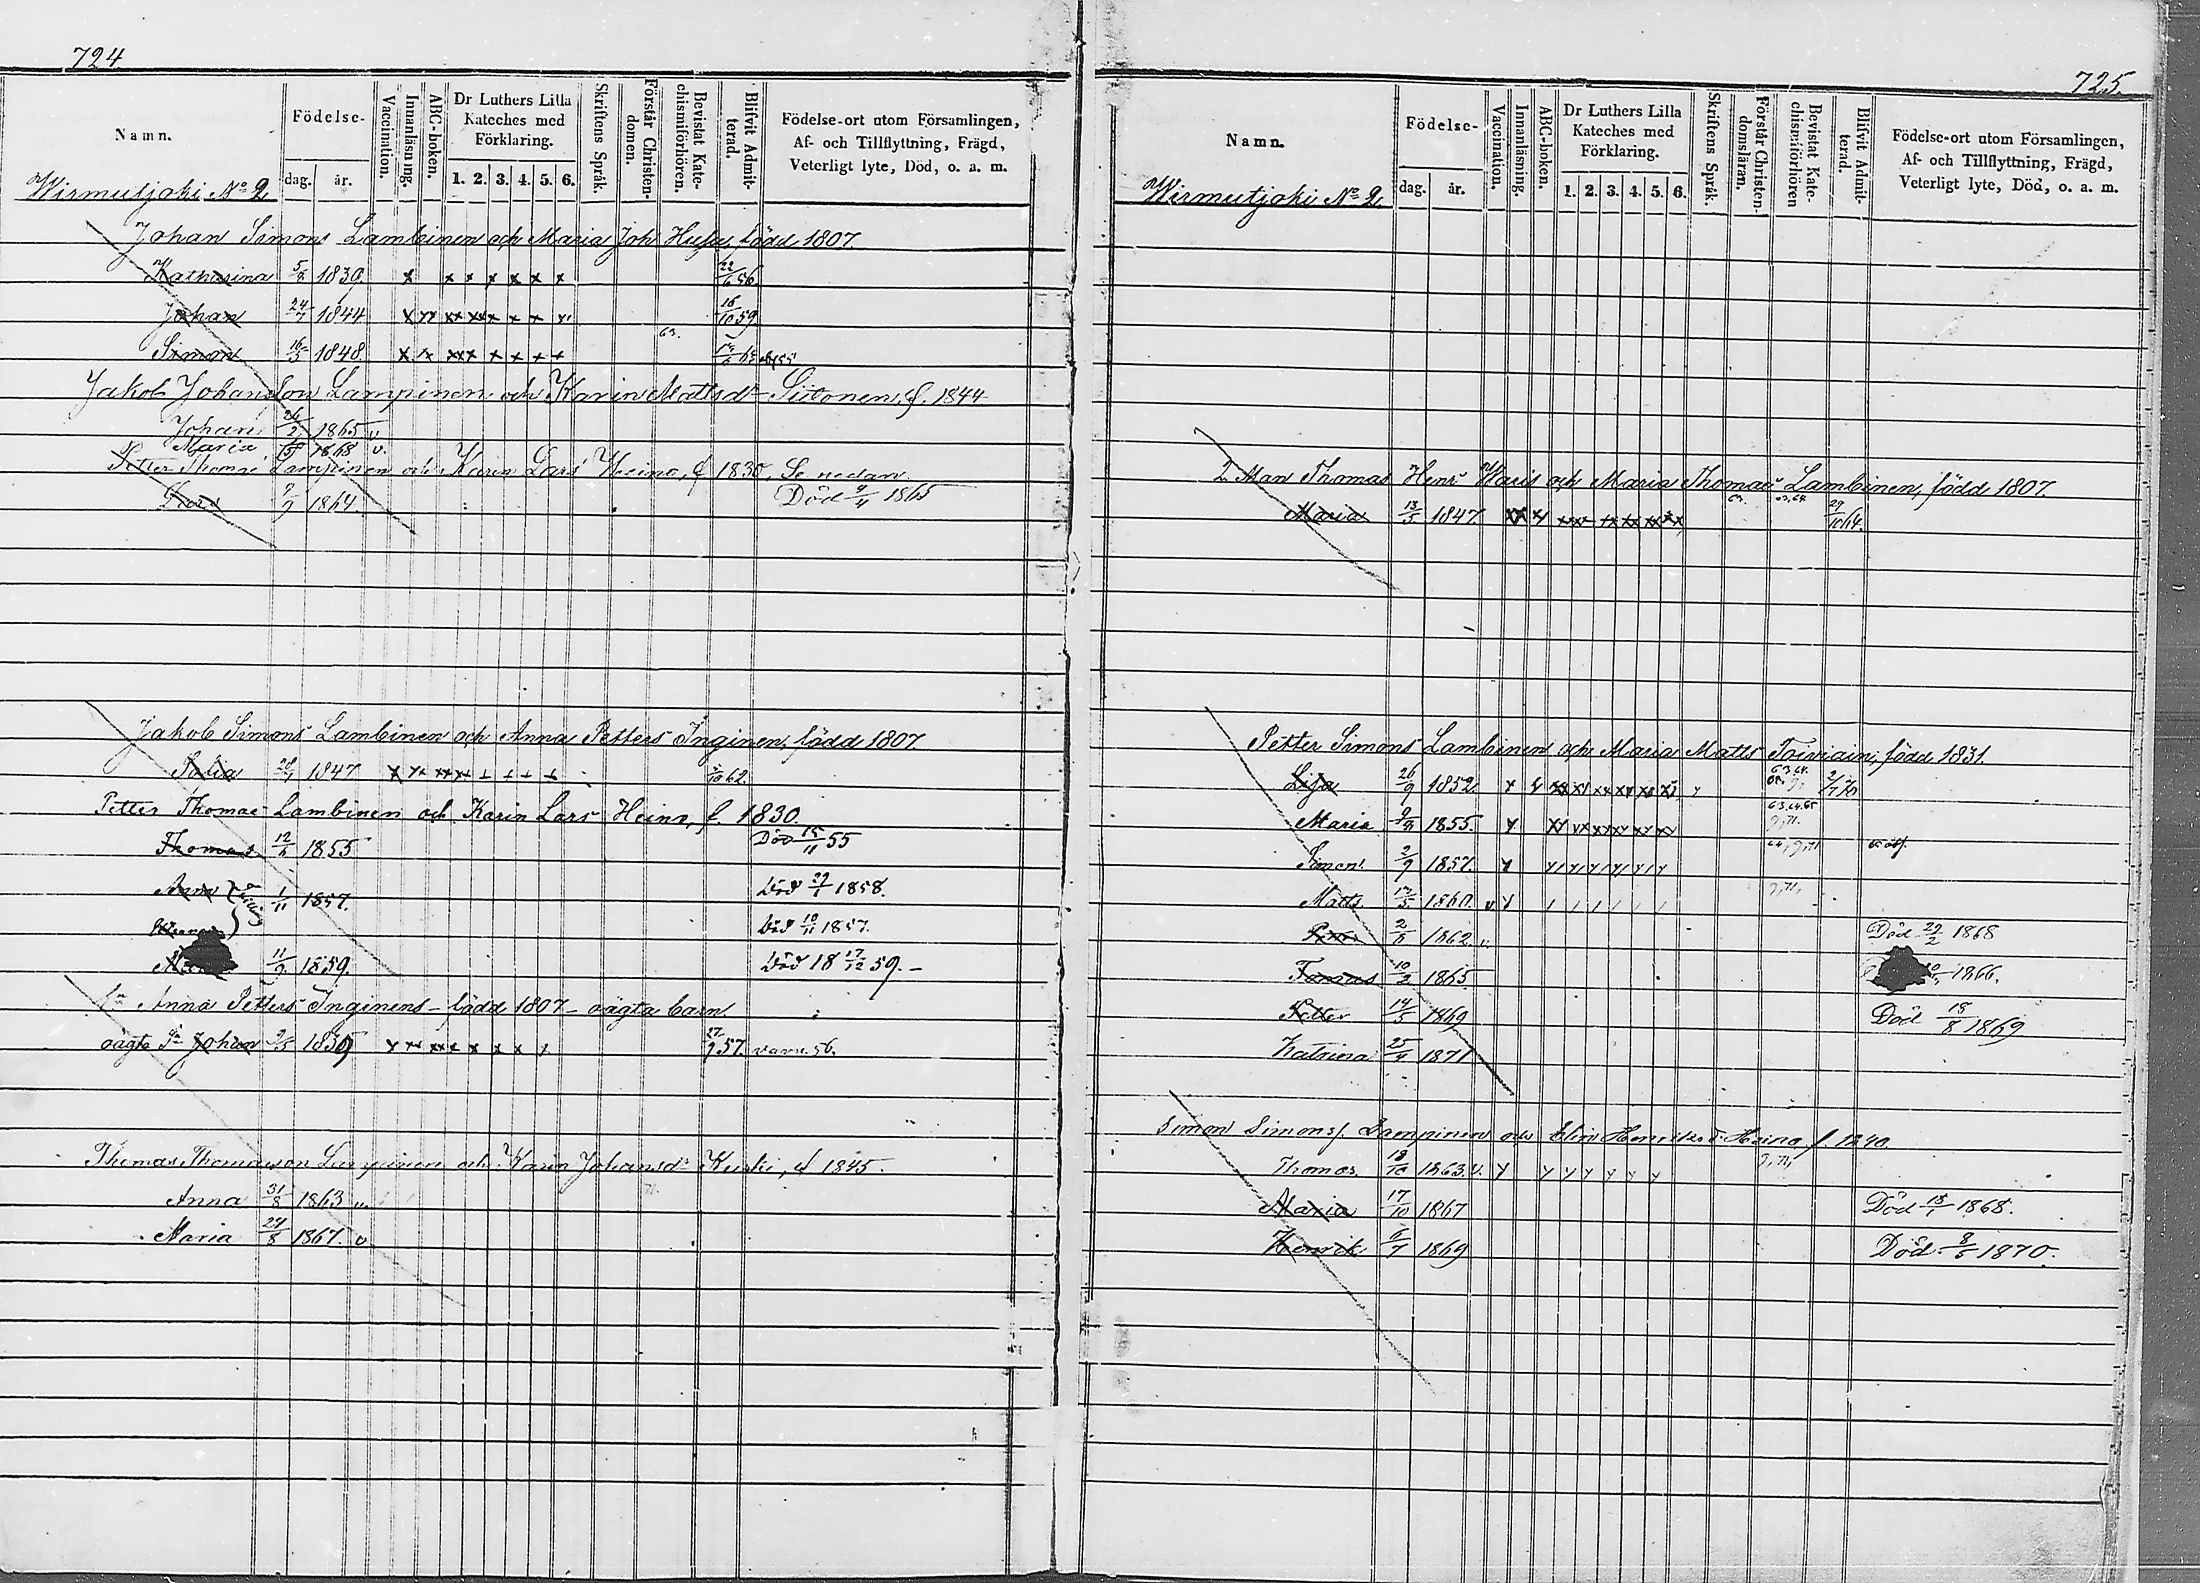 724.
Namn.
Födelse-
dag.
år.
Vaccination.
Innanläsning.
ABC-boken.
Dr Luthers Lilla
Kateches med
Förklaring.
1. 2. 3. 4. 5. 6.
Skriftens Språk.
Förstår Christen-
domen.
Bevistat Kate-
chismiförhören.
Blifvit Admit-
terad.
Födelse-ort utom Församlingen,
Af- och Tillflyttning, Frägd,
Veterligt lyte, Död, o. a. m.
Wirmutjoki No 2
Johan Simons Lambinen och Maria Joh Hufu, född 1807.
Katharina 5/8 1839. 22/6 56.
Johan 24/7 1844 16/10 59
63.
Simon 16/5 1848.
Jakob Johansson Lampinen och Karin Mattsd Siitonen, f. 1844
Johan 26/2 1865 v
Maria 1868 v.
Petter Thomae Lampinen och Karin Lars Heino, f 1830, Se nedan.
Lars 9/9 1864. Död 9/4 1865
Jakob Simons Lambinen och Anna Petters Inginen, född 1807
28/1 1847 62.
Petter Thomae Lambinen och Karin Lars Heino, f. 1830.
Thomas 12/6 1855 Död 15/11 55
Anna 1/11 1857. Död 29/1 1858.
Död 10/11 1857.
11/9 1859. Död 18 17/12 59.-
Anna Petters Inginens - född 1807 - oägta barn.
oägta Johan 9/5 1839 27/9 57.
Thomas Thomasson Lampinen och Karin Johansdr Kurki, f 1845.
71.
Anna 31/8 1863 v.
Maria 27/8 1867. v
725.
Namn.
Födelse-
dag.
år.
Vaccination.
Innanläsning.
ABC-boken.
Dr Luthers Lilla
Kateches med
Förklaring.
1. 2. 3. 4. 5. 6.
Skriftens Språk.
Förstår Christen-
domsläran.
Bevistat Kate-
chismiförhören
Blifvit Admit-
terad.
Födelse-ort utom Församlingen,
Af- och Tillflyttning, Frägd,
Veterligt lyte, Död, o. a. m.
Wirmutjoki No 2.
Man Thomas Henr Waris och Maria Thomae Lambinen, född 1807.
Maria 13/5 1847. 63. 63,64. 29/10 64.
Petter Simons Lambinen och Maria Matts Toiviain, född 1831.
Lisa 26/9 1852. 63 64. 2/7 70
Maria 1855. 63,64.65
Simon 2/9 1857.
Matts 17/5 1860. v
2/8 1862 v. Död 29/2 1868
Tomas 10/2 1865 1866.
Petter 14/5 1869 Död 18/8 1869
Katrina 25/4 1871
Simon Simonss. Lampinen och Elin Henriksd. Heino f. 1840.
Thomas 18/10 1863. v.
Maria 17/10 1867 Död 18/1 1868.
Henrik 6/7 1869 Död 8/5 1870.